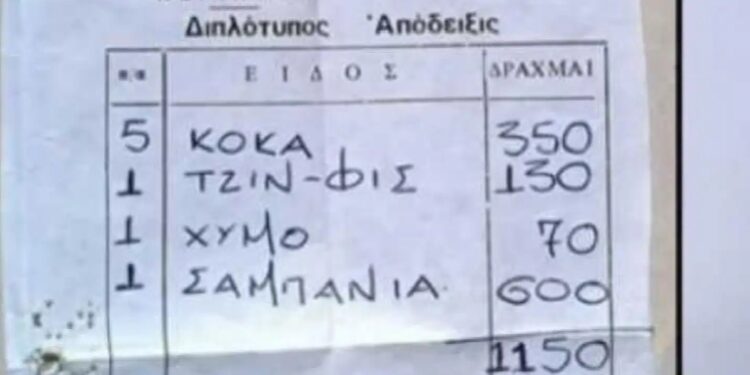 Διπλότυπος Ἀπόδειξις
α/α ΕΙΔΟΣ ΔΡΑΧΜΑΙ
5 ΚΟΚΑ 350
1 ΤΖΙΝ-ΦΙΣ 130
1 ΧΥΜΟ 70
1 ΣΑΜΠΑΝΙΑ 600
1150